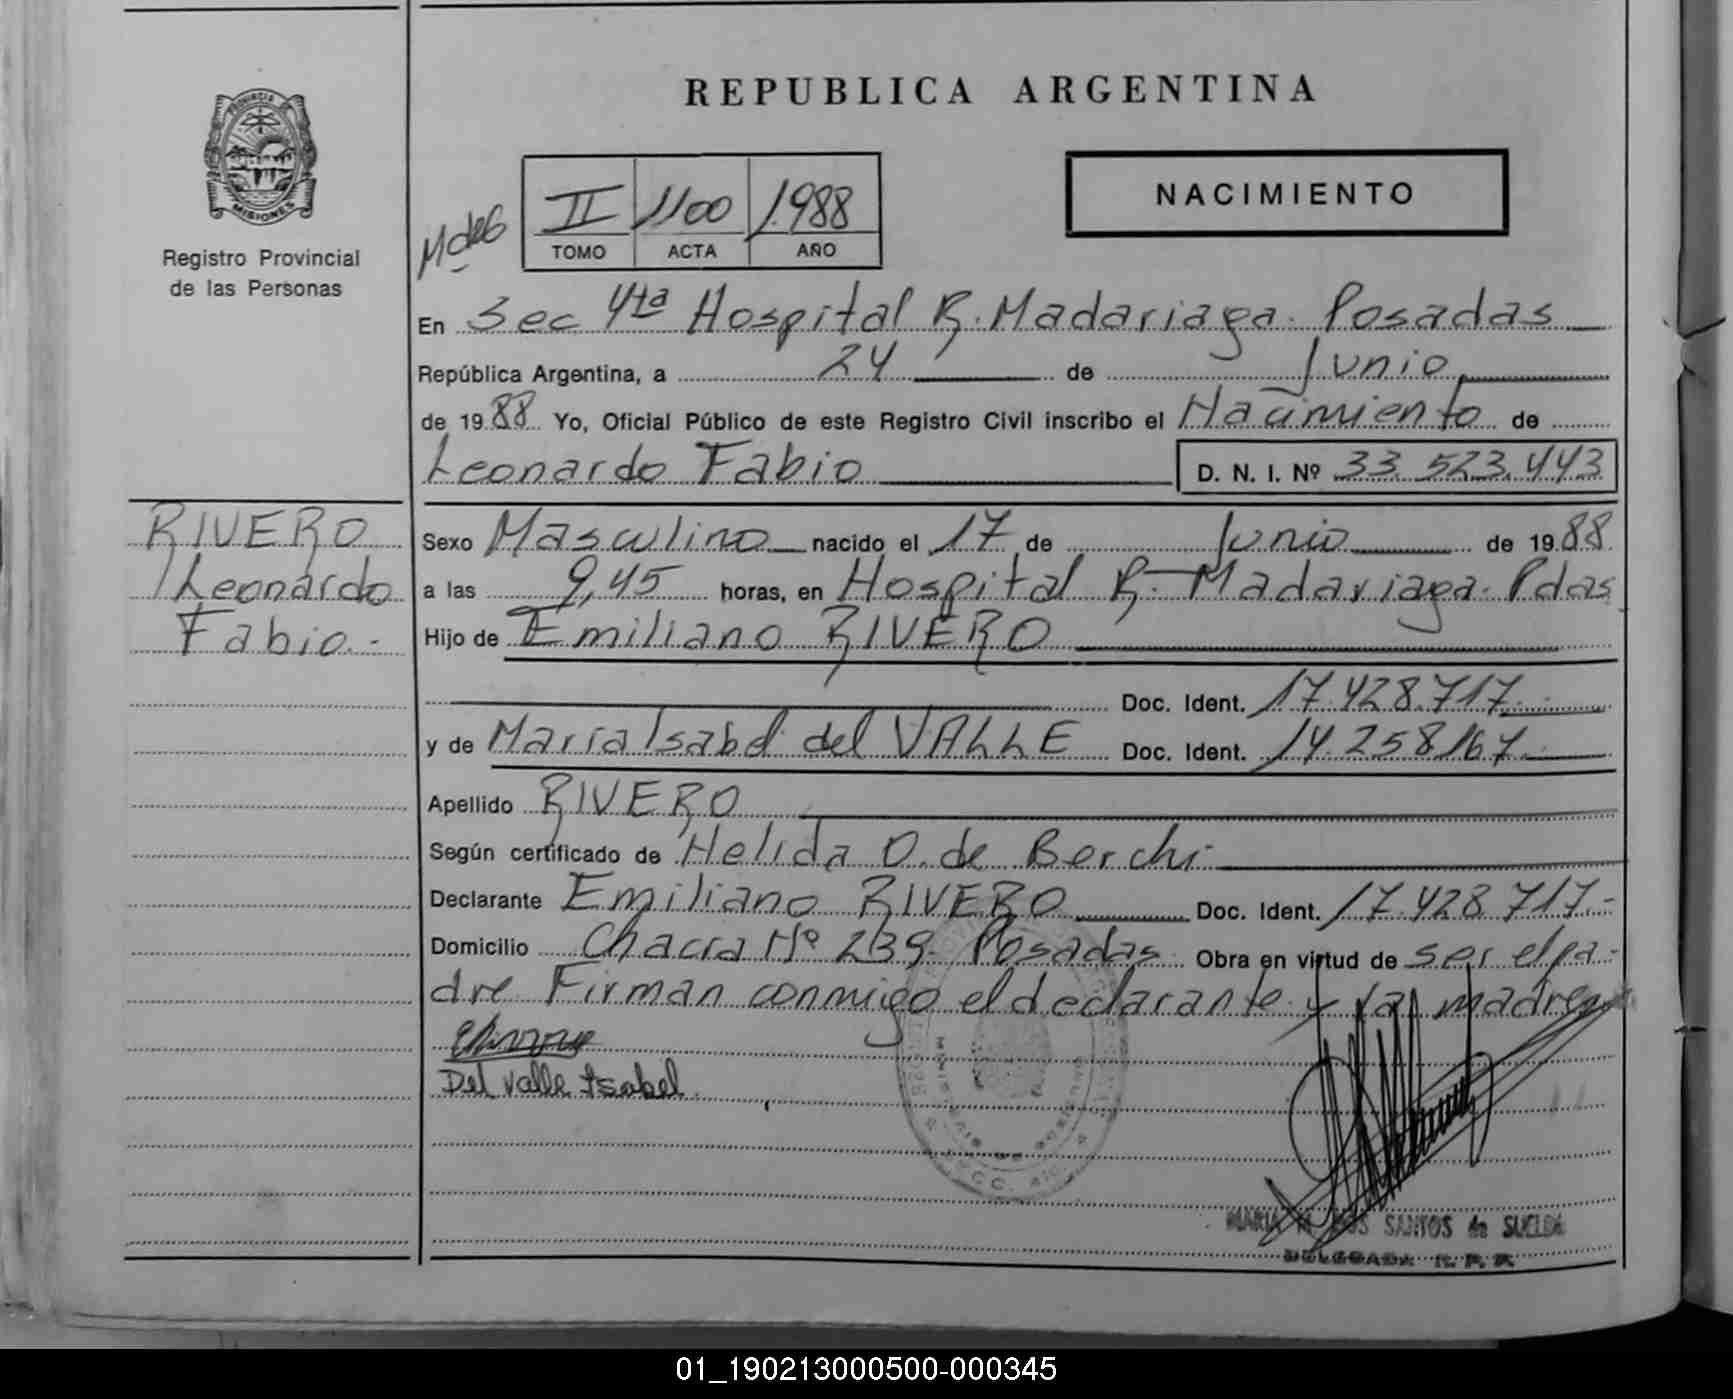 REPUBLICA ARGENTINA
PROVINCIA DE
MISIONES
Registro Provincial
de las Personas
NACIMIENTO
II 1100 1988
TOMO ACTA AÑO
En Sec 4ta Hospital R. Madariaga. Posadas
República Argentina, a 24 de Junio
de 1988 Yo, Oficial Público de este Registro Civil inscribo el Nacimiento de
Leonardo Fabio D. N. I. Nº 33.523.443
RIVERO
Leonardo
Fabio.-
Sexo Masculino nacido el 17 de Junio de 1988
a las 9,45 horas, en Hospital R. Madariaga. Pdas
Hijo de Emiliano RIVERO
Doc. Ident. 17.428.717.-
y de Maria Isabel del VALLE Doc. Ident. 14.258.167.-
Apellido RIVERO
Según certificado de Helida O. de Berchi
Declarante Emiliano RIVERO Doc. Ident. 17.428.717.-
Domicilio Chacra Nº 239. Posadas. Obra en virtud de ser el pa-
dre. Firman conmigo el declarante y la madre
Del valle Isabel.
MARIA M. DOS SANTOS de SUELDA
DELEGADA R. P. P.
01_190213000500-000345